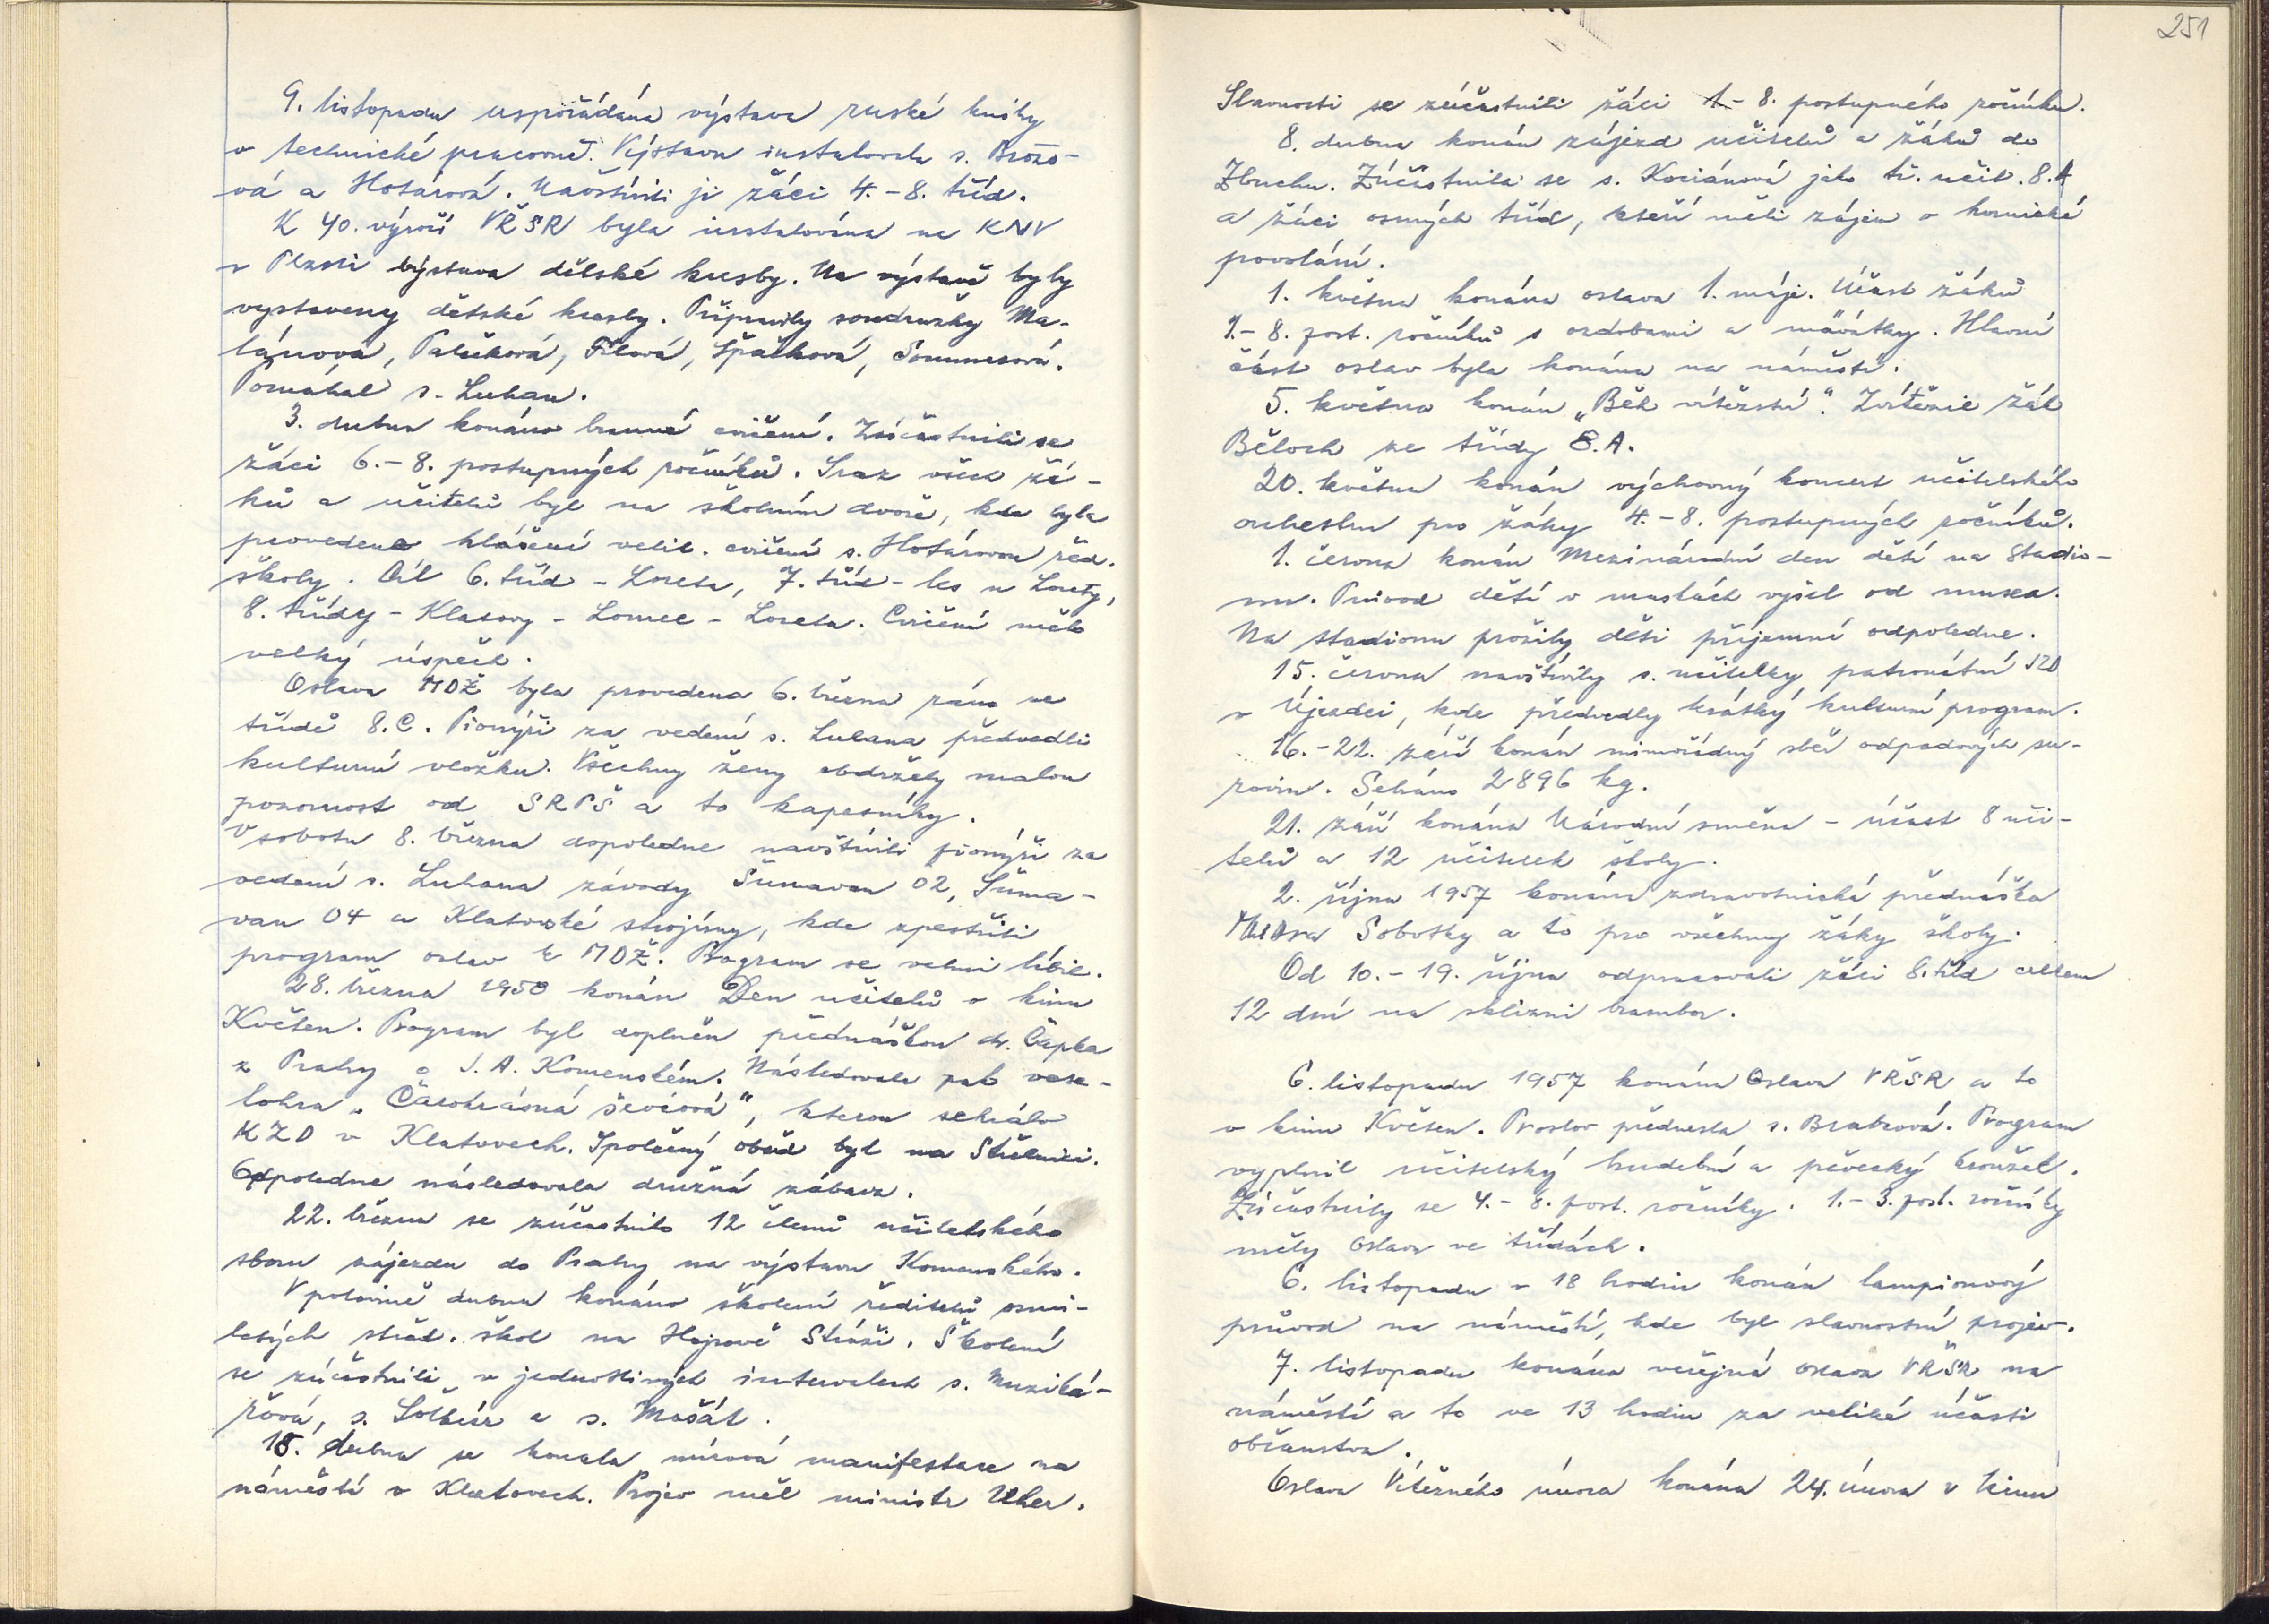 9. listopadu uspořádána výstava ruské knihy
v technické pracovně. Výstavu instalovala s. Brožo-
vá a Hotárová. Navštívili ji žáci 4.-8. tříd.
K 40. výročí VŘSR byla instalována na KNV
v Plzni výstava dětské kresby. Na výstavě byly
vystaveny dětské kresby. Připravily soudružky Ma-
lánová, Palečková, Filová, Špačková, Sommerová.
Pomáhal s. Luhan.
3. dubna konáno branné cvičení. Zúčastnili se
žáci 6.-8. postupných ročníků. Sraz všech žá-
ků a učitelů byl na školním dvoře, kde byla
provedena hlášení velit. cvičení s. Hotárovou řed.
školy. Cíl 6. tříd - Loreta, 7. tříd - les u Lorety,
8. třídy - Klatovy - Lomec - Loreta. Cvičení mělo
velký úspěch.
Oslava MDŽ byla provedena 6. března ráno ve
třídě 8.C. Pionýři za vedení s. Luhana předvedli
kulturní vložku. Všechny ženy obdržely malou
pozornost od SRPŠ a to kapesníky.
V sobotu 8. března dopoledne navštívili pionýři za
vedení s. Luhana závody Šumavan 02, Šuma-
van 04 a Klatovské strojírny, kde zpestřili
program oslav k MDŽ. Program se velmi líbil.
28. března 1958 konán Den učitelů v kinu
Květen. Program byl doplněn přednáškou dr. Čapka
z Prahy o J. A. Komenském. Následovala pak vese-
lohra "Čarokrásná ševcová", kterou sehrálo
KZD v Klatovech. Společný oběd byl na Střelnici.
Odpoledne následovala družná zábava.
22. března se zúčastnilo 12 členů učitelského
sboru zájezdu do Prahy na výstavu Komenského.
V polovině dubna konáno školení ředitelů osmi-
letých střed. škol na Hojsově Stráži. Školení
se zúčastnili v jednotlivých intervalech s. Muziká-
řová, s. a s. Mašát.
18. dubna se konala mírová manifestace na
náměstí v Klatovech. Projev měl ministr Uher.
251
Slavnosti se zúčastnili žáci 1.-8. postupného ročníku.
8. dubna konán zájezd učitelů a žáků do
Zbuchu. Zúčastnila se s. Kociánová jako tř. učit. 8.A
a žáci osmých tříd, kteří měli zájem o hornické
povolání.
1. května konána oslava 1. máje. Účast žáků
1.-8. post. ročníků s ozdobami a mávátky. Hlavní
část oslav byla konána na náměstí.
5. května konán "Běh vítězství". Zvítězil žák
Běloch ze třídy 8.A.
20. května konán výchovný koncert učitelského
orchestru pro žáky 4.-8. postupných ročníků.
1. června konán Mezinárodní den dětí na stadio-
nu. Průvod dětí v maskách vyšel od musea.
Na stadionu prožily děti příjemné odpoledne.
15. června navštívily s. učitelky patronátní JZD
v Újezdci, kde předvedly krátký kulturní program.
16.-22. září konán mimořádný sběr odpadových su-
rovin. Sebráno 2896 kg.
21. září konána Národní směna - účast 8 uči-
telů a 12 učitelek školy.
2. října 1957 konána zdravotnická přednáška
MUDra Sobotky a to pro všechny žáky školy.
Od 10.-19. října odpracovali žáci 8. tříd celkem
12 dní na sklizni brambor.
6. listopadu 1957 konána Oslava VŘSR a to
v kinu Květen. Proslov přednesla s. Brabcová. Program
vyplnil učitelský hudební a pěvecký kroužek.
Zúčastnily se 4.-8. post. ročníky. 1.-3. post. ročníky
měly oslavu ve třídách.
6. listopadu v 18 hodin konán lampionový
průvod na náměstí, kde byl slavnostní projev.
7. listopadu konána veřejná oslava VŘSR na
náměstí a to ve 13 hodin za veliké účasti
občanstva.
Oslava Vítězného února konána 24. února v kinu